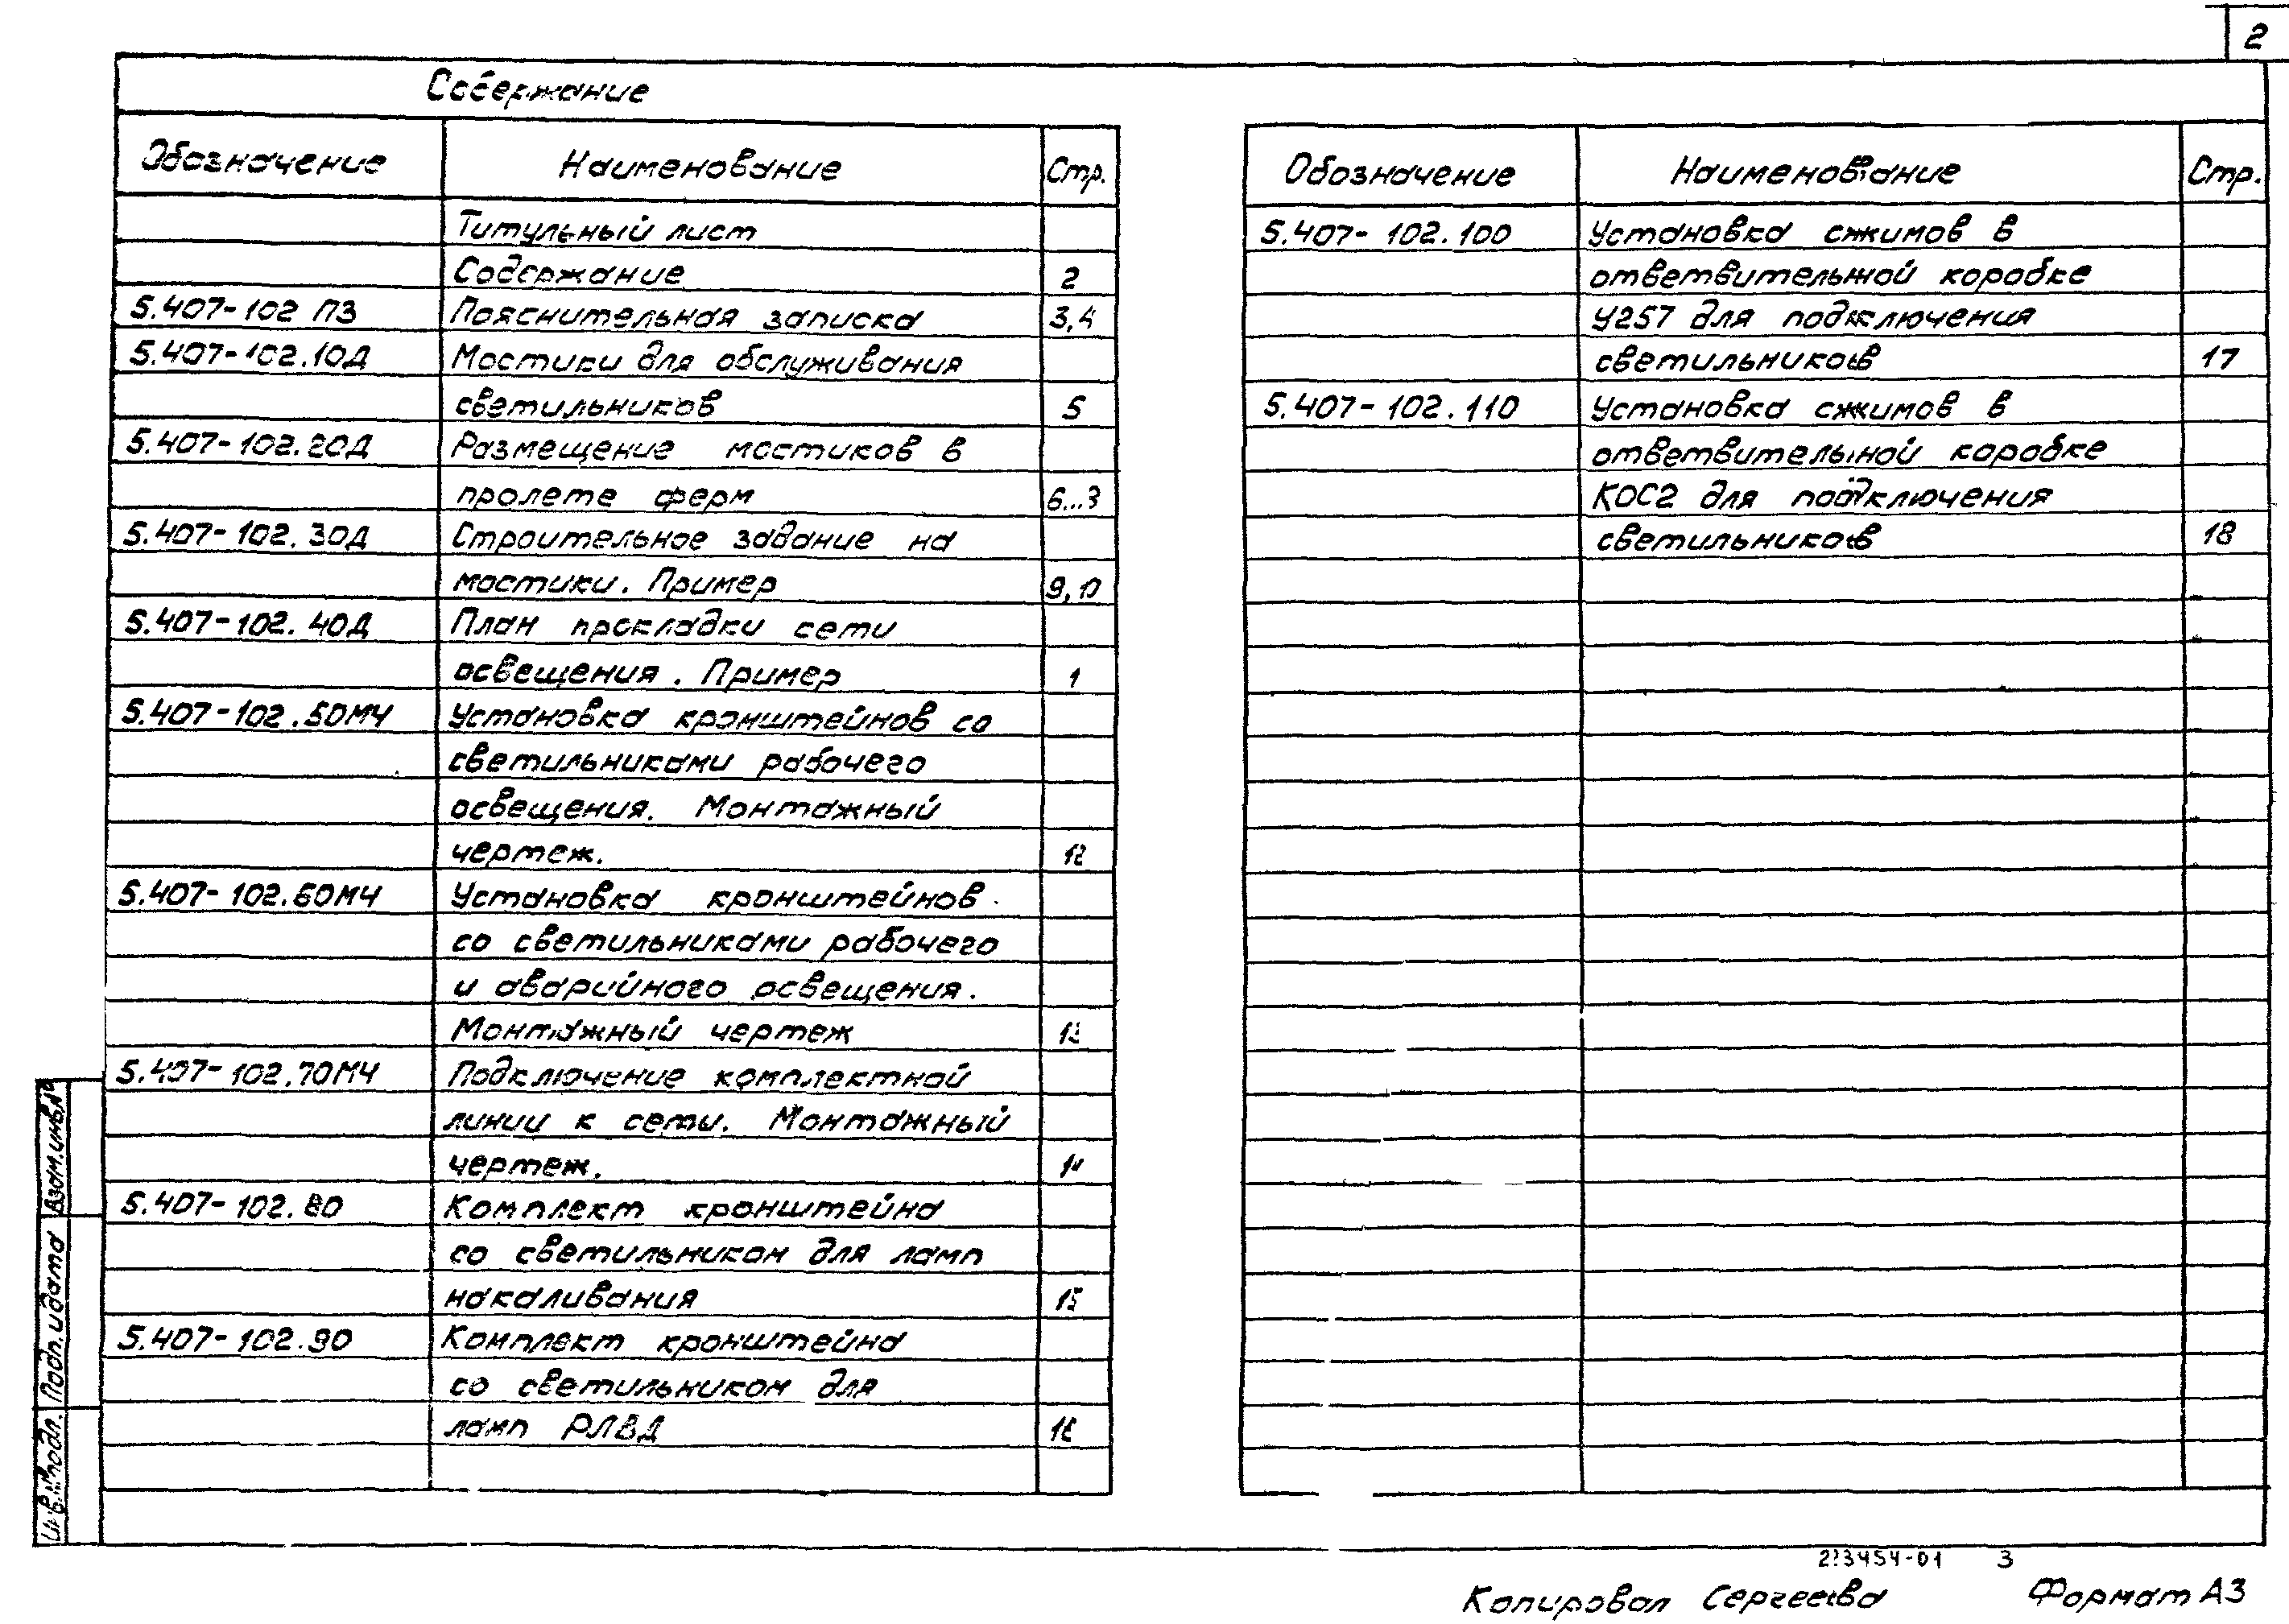 2
Содержание
Обозначение Наименование Стр.
Титульный лист
Содержание 2
5.407-102 ПЗ Пояснительная записка 3,4
5.407-102.10Д Мостики для обслуживания
светильников 5
5.407-102.20Д Размещение мостиков в
пролете ферм 6...8
5.407-102.30Д Строительное задание на
мостики. Пример 9,10
5.407-102.40Д План прокладки сети
освещения. Пример
5.407-102.50МЧ Установка кронштейнов со
светильниками рабочего
освещения. Монтажный
чертеж. 12
5.407-102.60МЧ Установка кронштейнов
со светильниками рабочего
и аварийного освещения.
Монтажный чертеж 13
5.407-102.70МЧ Подключение комплектной
линии к сети. Монтажный
чертеж. 14
5.407-102.80 Комплект кронштейна
со светильником для ламп
накаливания 15
5.407-102.90 Комплект кронштейна
со светильником для
ламп РЛВД 16
Обозначение Наименование Стр.
5.407-102.100 Установка сжимов в
ответвительной коробке
У257 для подключения
светильников 17
5.407-102.110 Установка сжимов в
ответвительной коробке
КОС2 для подключения
светильников 18
Взам.инв.№
Подп.и дата
Инв.№подл.
3
Копировал Сергеева Формат А3